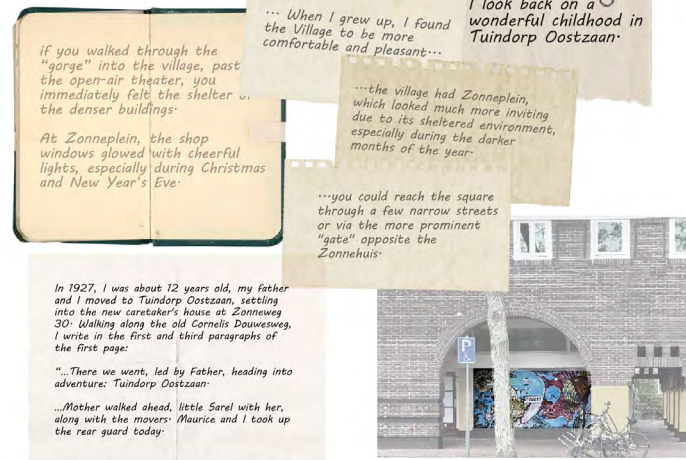 if you walked through the
"gorge" into the village, past
the open-air theater, you
immediately felt the shelter
the denser buildings.
At Zonneplein, the shop
windows glowed with cheerful
lights, especially during Christmas
and New Year's Eve.
... When I grew up, I found
the Village to be more
comfortable and pleasant...
I look back on a
wonderful childhood in
Tuindorp Oostzaan.
...the village had Zonneplein,
which looked much more inviting
due to its sheltered environment,
especially during the darker
months of the year.
...you could reach the square
through a few narrow streets
or via the more prominent
"gate" opposite the
Zonnehuis.
In 1927, I was about 12 years old, my father
and I moved to Tuindorp Oostzaan, settling
into the new caretaker's house at Zonneweg
30. Walking along the old Cornelis Douwesweg,
I write in the first and third paragraphs of
the first page:
"...There we went, led by Father, heading into
adventure: Tuindorp Oostzaan.
...Mother walked ahead, little Sarel with her,
along with the movers. Maurice and I took up
the rear guard today.
P